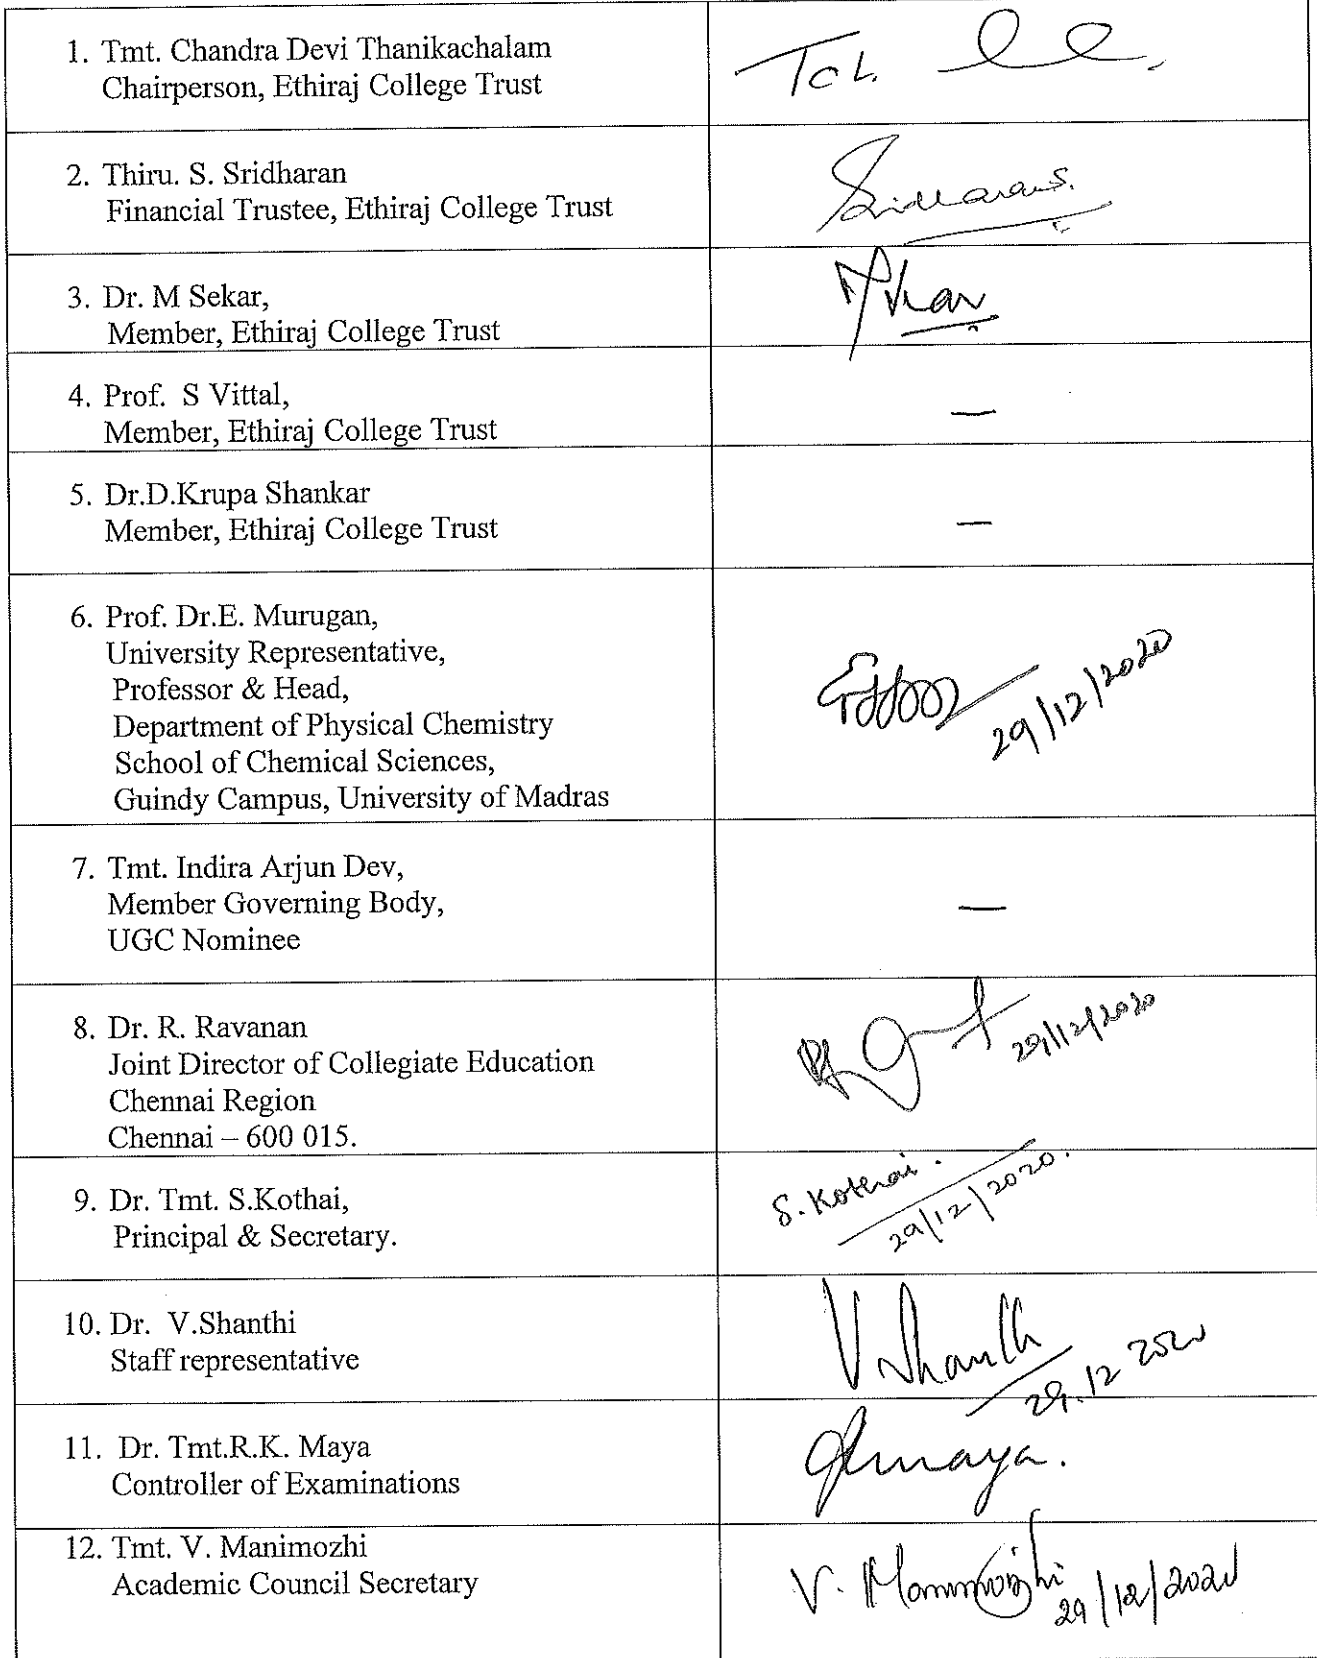 1. Tmt. Chandra Devi Thanikachalam
Chairperson, Ethiraj College Trust
2. Thiru. S. Sridharan
Financial Trustee, Ethiraj College Trust
3. Dr. M Sekar,
Member, Ethiraj College Trust
4. Prof. S Vittal,
Member, Ethiraj College Trust
—
5. Dr.D.Krupa Shankar
Member, Ethiraj College Trust
—
6. Prof. Dr.E. Murugan,
University Representative,
Professor & Head,
Department of Physical Chemistry
School of Chemical Sciences,
Guindy Campus, University of Madras
29/12/2020
7. Tmt. Indira Arjun Dev,
Member Governing Body,
UGC Nominee
—
8. Dr. R. Ravanan
Joint Director of Collegiate Education
Chennai Region
Chennai – 600 015.
29/12/2020
9. Dr. Tmt. S.Kothai,
Principal & Secretary.
S. Kothai.
29/12/2020.
10. Dr. V.Shanthi
Staff representative
V. Shanthi
29.12 2020
11. Dr. Tmt.R.K. Maya
Controller of Examinations
12. Tmt. V. Manimozhi
Academic Council Secretary
V. Manimozhi
29/12/2020